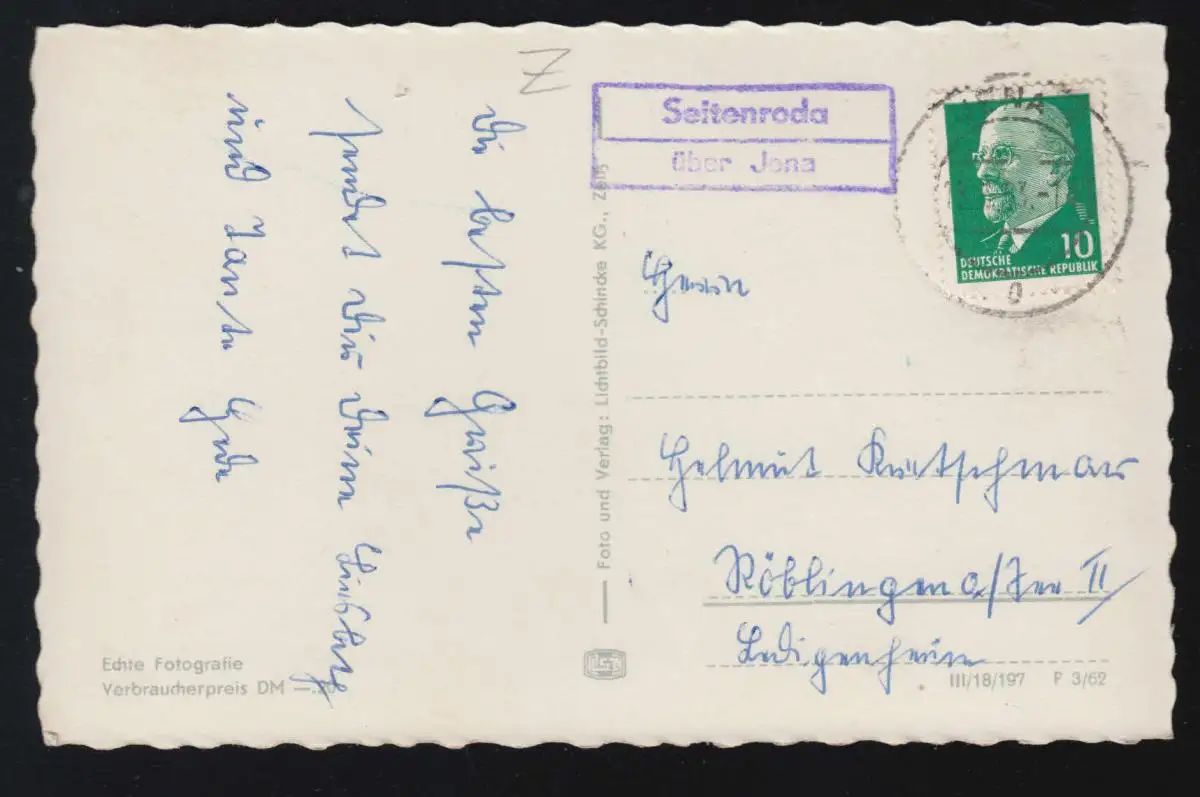 Die besten Grüße
sendet Dir Deine
und Tante
Echte Fotografie
Verbraucherpreis DM —.20
Foto und Verlag: Lichtbild-Schincke KG., Zeitz
Z
Seitenroda
über Jena
JENA
DEUTSCHE
DEMOKRATISCHE REPUBLIK
10
Herrn
Helmut Kretschmar
Röblingen a/See II
Ledigenheim
III/18/197 P 3/62